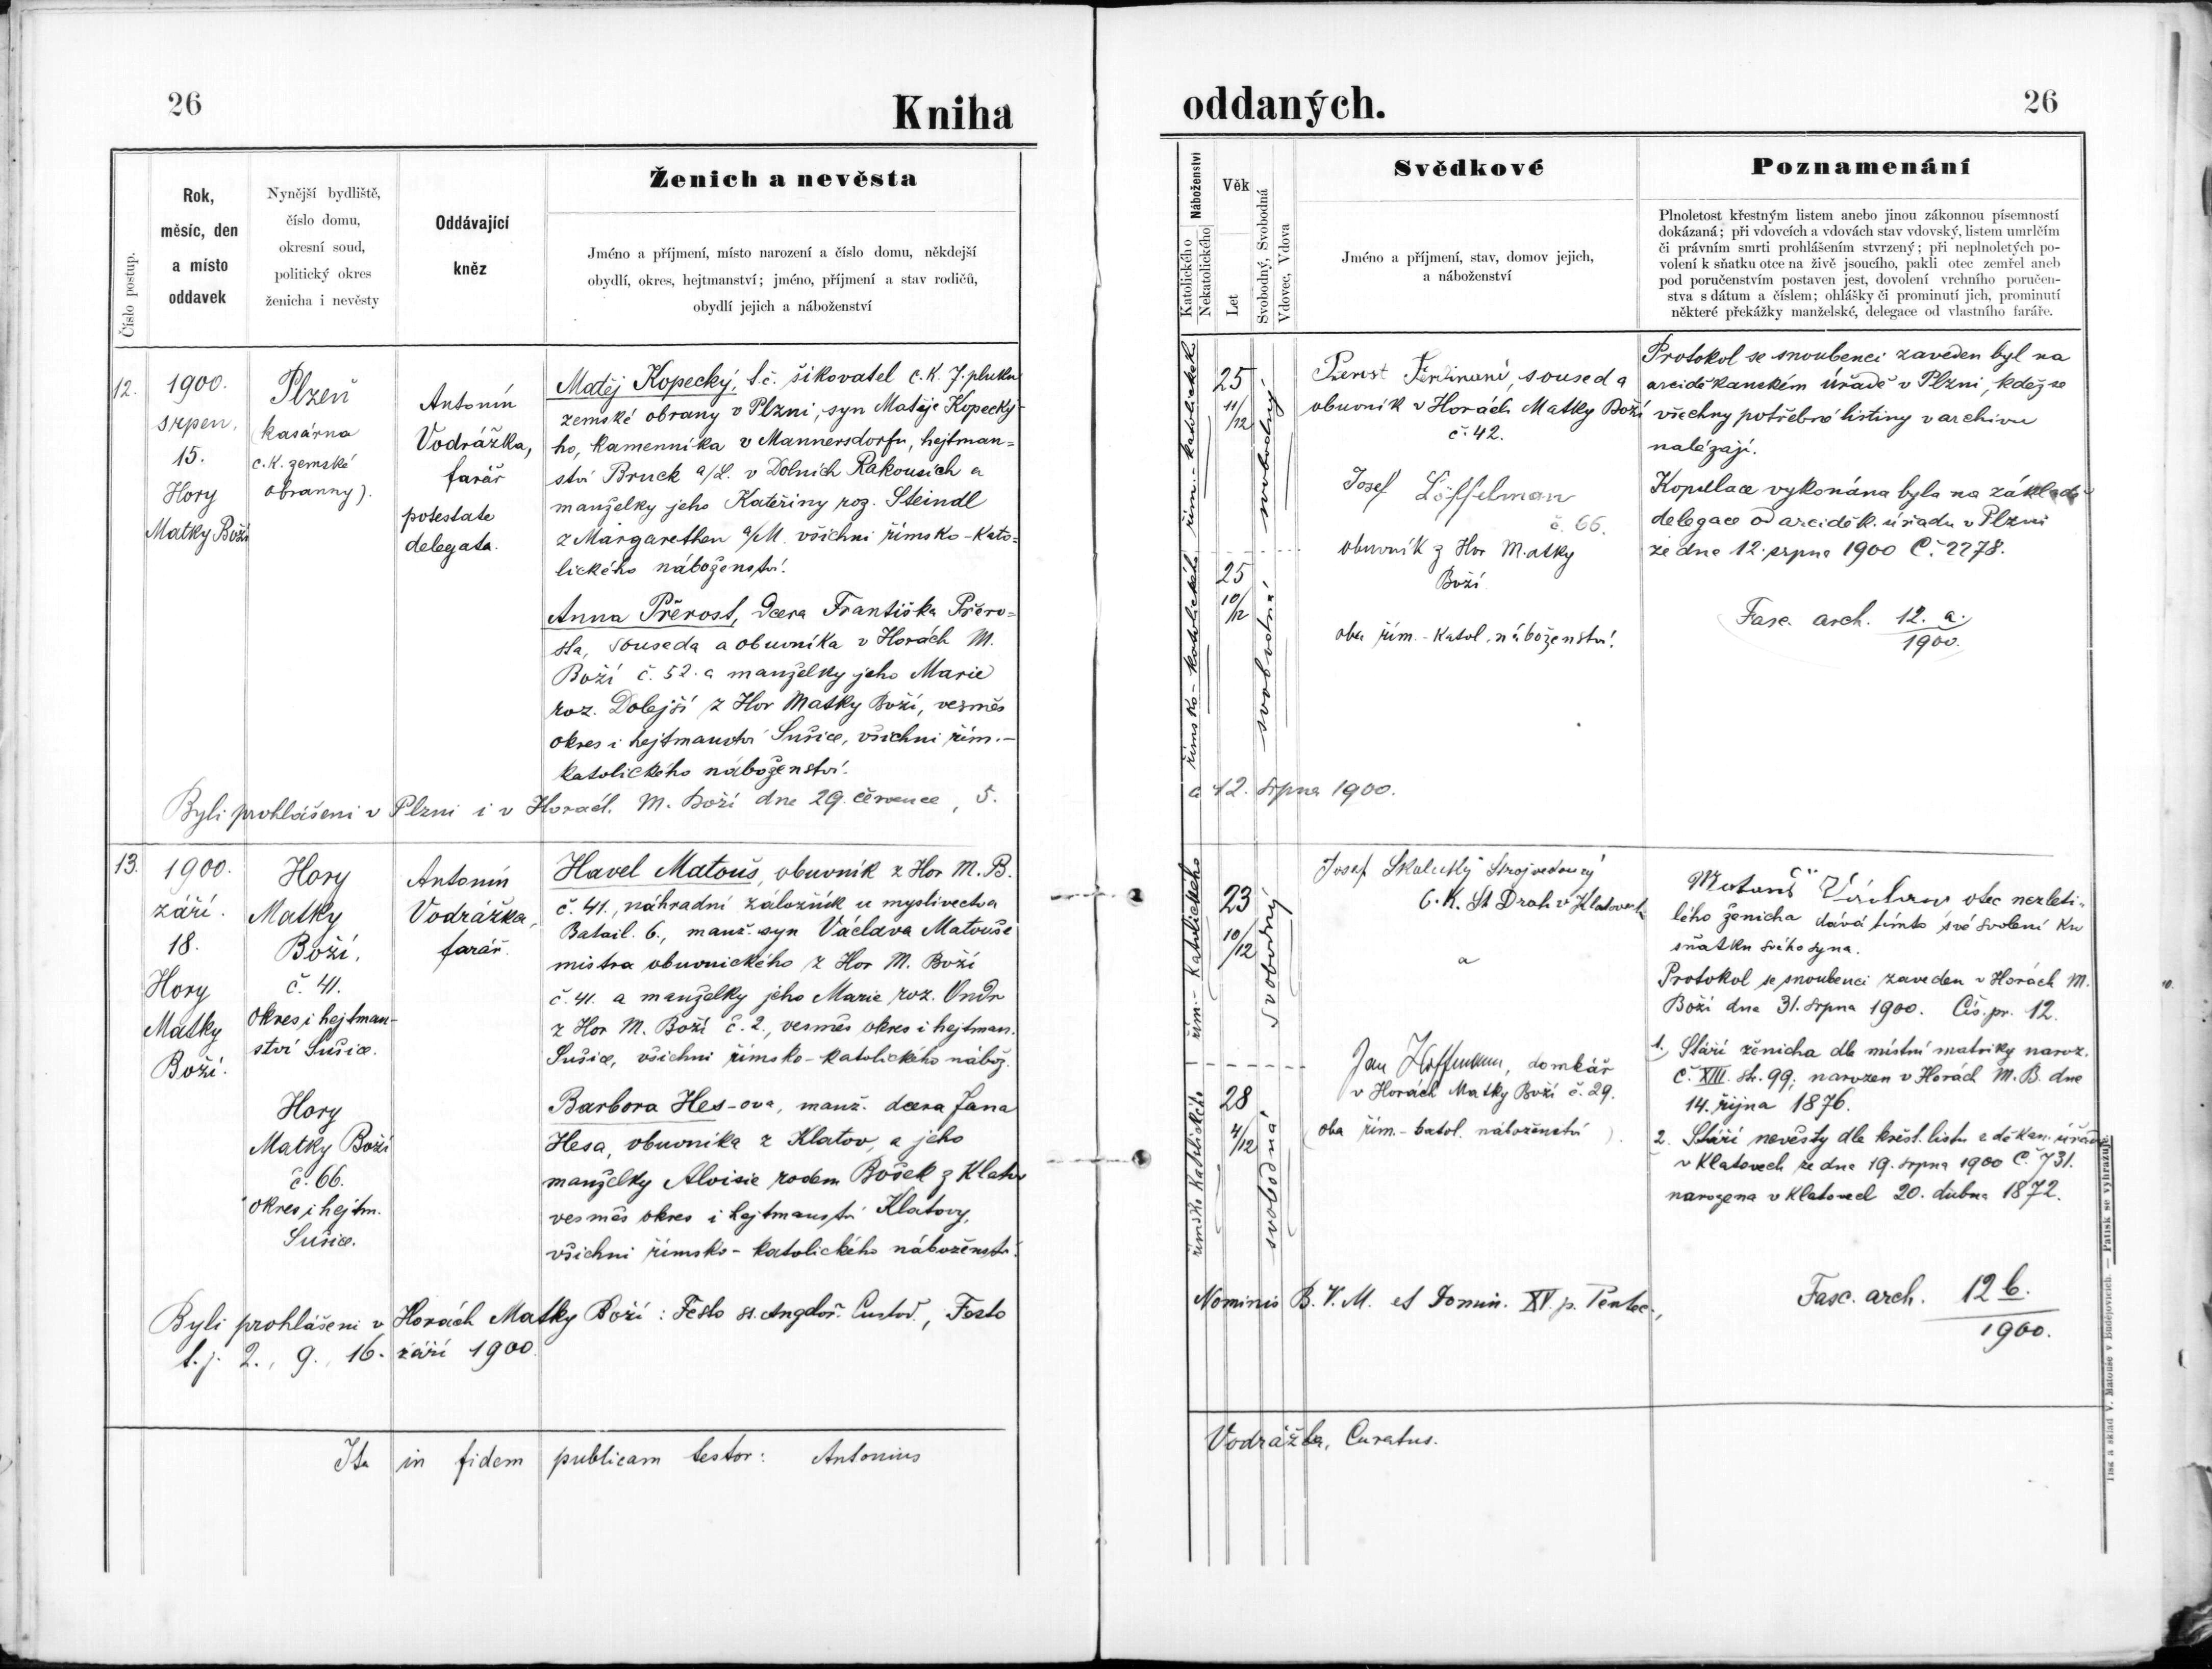 26
Kniha
oddaných.
26
Číslo postup.
Rok,
měsíc, den
a místo
oddavek
Nynější bydliště,
číslo domu,
okresní soud,
politický okres
ženicha i nevěsty
Oddávající
kněz
Ženich a nevěsta
Jméno a příjmení, místo narození a číslo domu, někdejší
obydlí, okres, hejtmanství; jméno, příjmení a stav rodičů,
obydlí jejich a náboženství
Náboženství
Katolického
Nekatolického
Věk
Let
Svobodný, Svobodná
Vdovec, Vdova
Svědkové
Jméno a příjmení, stav, domov jejich,
a náboženství
Poznamenání
Plnoletost křestným listem anebo jinou zákonnou písemností
dokázaná; při vdovcích a vdovách stav vdovský, listem umrlčím
či právním smrti prohlášením stvrzený; při neplnoletých po-
volení k sňatku otce na živě jsoucího, pakli otec zemřel aneb
pod poručenstvím postaven jest, dovolení vrchního poručen-
stva s dátum a číslem; ohlášky či prominutí jich, prominutí
některé překážky manželské, delegace od vlastního faráře.
12.
1900.
srpen,
15.
Hory
Matky Boží
Plzeň
(kasárna
c. k. zemské
obranny).
Antonín
Vodrážka,
farář
potestate
delegata.
Matěj Kopecký, t. č. šikovatel c. k. 7. pluku
zemské obrany v Plzni, syn Matěje Kopecký-
ho, kamenníka v Mannersdorfu, hejtman=
ství Bruck a/L. v Dolních Rakousích a
manželky jeho Kateřiny roz. Steindl
z Margarethen a/M. všichni římsko-kato=
lického náboženství.
Anna Přerost, dcera Františka Přero=
sta, souseda a obuvníka v Horách M.
Boží č. 52. a manželky jeho Marie
roz. Dolejší z Hor Matky Boží, vesměs
okres i hejtmanství Sušice, všichni řím.-
katolického náboženství.
řím.-katolického
římsko-katolického
25
11/12
25
10/12
svobodný
svobodná
Ferdinand, soused a
obuvník v Horách Matky Boží
č. 42.
Josef Löffelman
č. 66.
obuvník z Hor Matky
Boží
oba řím.-katol. náboženství.
Protokol se snoubenci zaveden byl na
arciděkanském úřadě v Plzni, kdež se
všechny potřebné listiny v archivu
nalézají.
Kopulace vykonána byla na základě
delegace od arciděk. úřadu v Plzni
ze dne 12. srpna 1900 Č. 2278.
Fasc. arch. 12. a.
1900.
Byli prohlášeni v Plzni i v Horách M. Boží dne 29. července, 5.
a 12. srpna 1900.
13.
1900.
září.
18.
Hory
Matky
Boží.
Hory
Matky
Boží,
č. 41.
okres i hejtman-
ství Sušice.
Hory
Matky Boží
č. 66.
okres i hejtm.
Sušice.
Antonín
Vodrážka,
farář.
Havel Matouš, obuvník z Hor M. B.
č. 41., náhradní záložník u myslivectva
Batail. 6., manž. syn Václava Matouše
mistra obuvnického z Hor M. Boží
č. 41. a manželky jeho Marie roz. Ondr
z Hor M. Boží č. 2., vesměs okres i hejtman.
Sušice, všichni římsko-katolického nábož.
Barbora Hes-ova, manž. dcera Jana
Hesa, obuvníka z Klatov, a jeho
manželky Aloisie rodem Bošek z Klatov
vesměs okres i hejtmanství Klatovy,
všichni římsko-katolického náboženství.
řím.-katolického
římsko katolického
23
10/12
28
4/12
svobodný
svobodná
Josef Skalický Strojvedoucý
C. K. St Drah v Klatovech
a
Jan Hoffmann, domkář
v Horách Matky Boží č. 29.
(oba řím.-katol. náboženství).
Matouš Václav otec nezleti-
lého ženicha dává tímto své svolení ku
sňatku svého syna.
Protokol se snoubenci zaveden v Horách M.
Boží dne 31. srpna 1900. Čís. pr. 12.
1. Stáří ženicha dle místní matriky naroz.
č. XIII. str. 99; narozen v Horách M. B. dne
14. října 1876.
2. Stáří nevěsty dle křest. listu z děkan. úřadu
v Klatovech ze dne 19. srpna 1900 Č. 731.
narozena v Klatovech 20. dubna 1872.
Byli prohlášeni v Horách Matky Boží: Festo st. Angelor. Custod., Festo
Nominis B. V. M. et Domin. XV. p. Pentec.,
t. j. 2., 9., 16. září 1900.
Fasc. arch. 12 b.
1900.
Ita in fidem publicam testor: Antonius
Vodrážka, Curatus.
Tisk a sklad V. Matouše v Budějovicích. — Patisk se vyhrazuje.